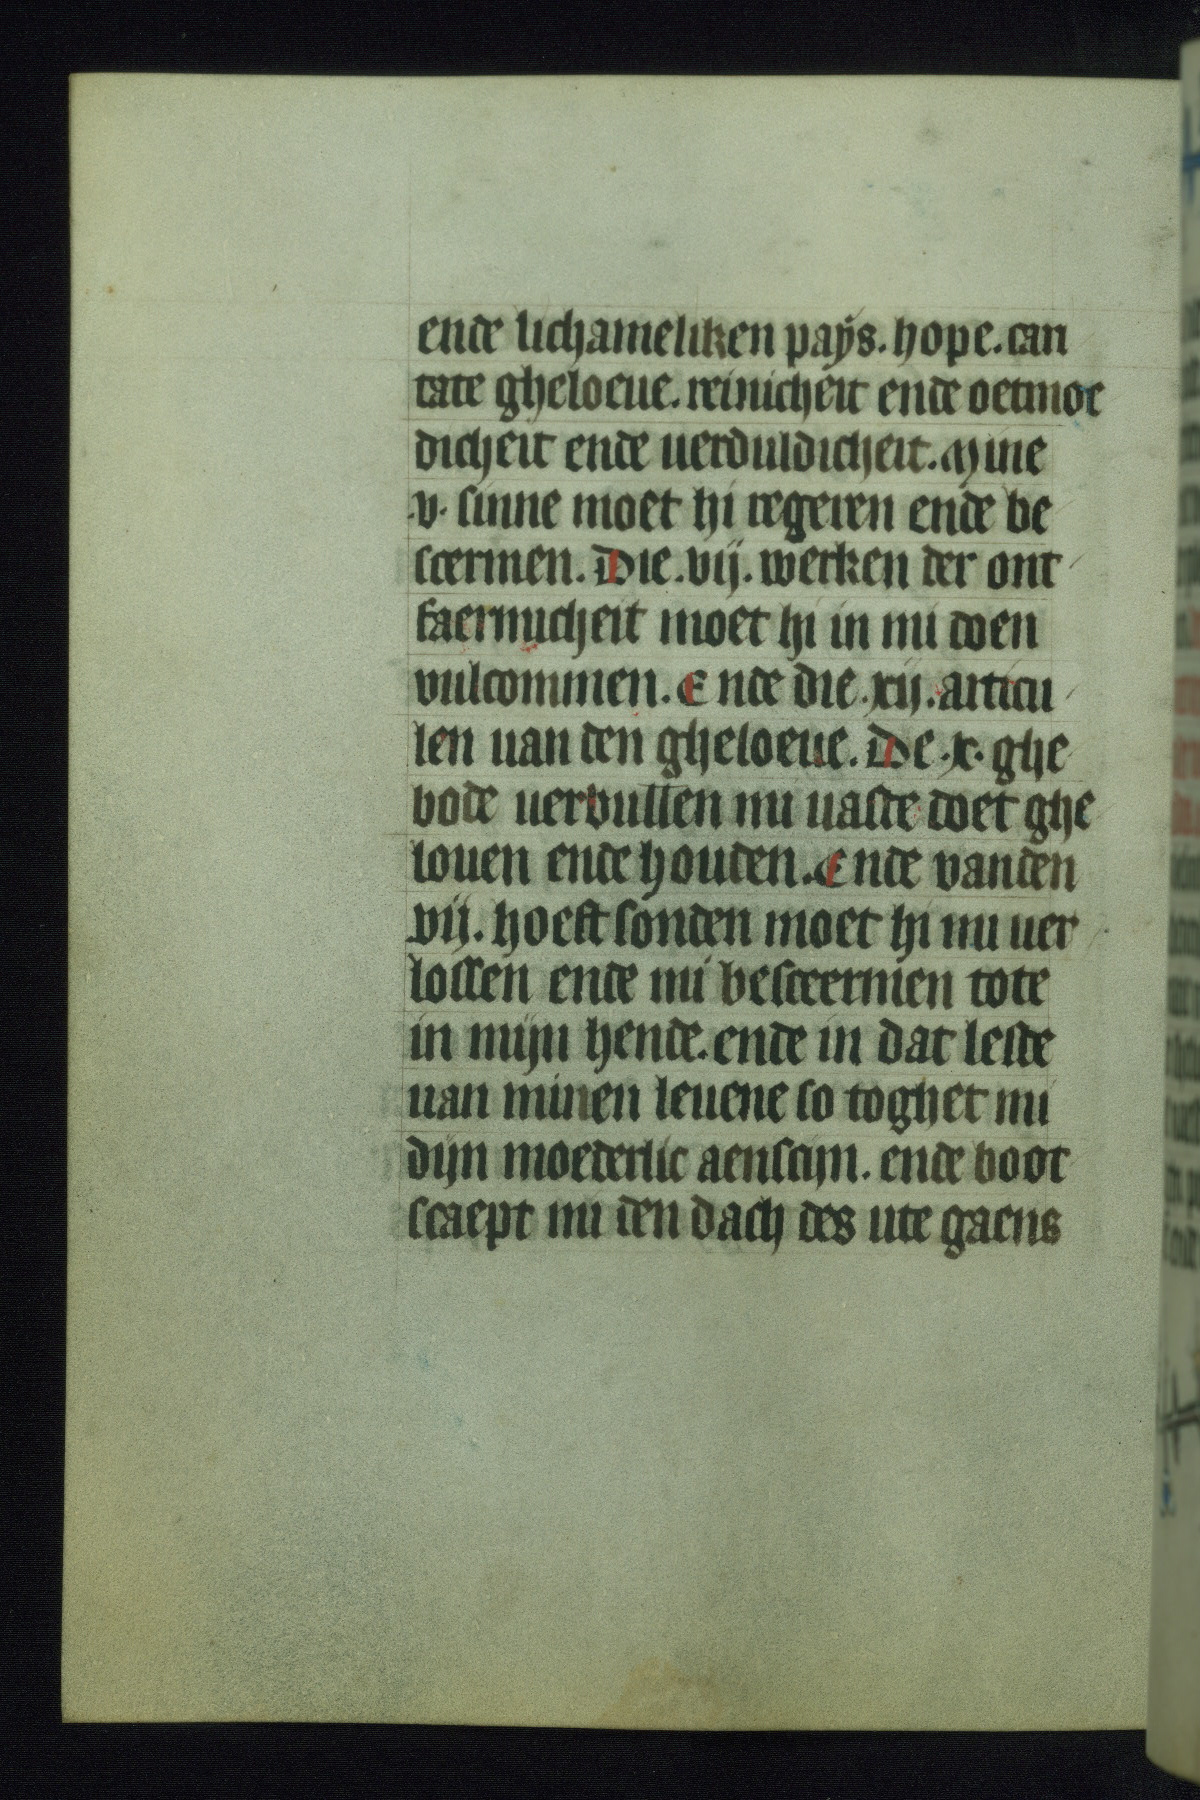 ende lichameliken pays. hope. cari
tate gheloeue. reinicheit ende oetmoe
dicheit ende uerduldicheit. Mine
.v. sinne moet hi regeren ende be
scermen. Die .vij. werken der ont
faermicheit moet hi in mi doen
vulcommen. Ende die .xij. articu
len uan den gheloeue. De .x. ghe
bode uervullen mi uaste doet ghe
louen ende houden. Ende vanden
vij. hoeftsonden moet hi mi uer
lossen ende mi besceermen tote
in mijn hende. ende in dat leste
uan minen leuene so toghet mi
dijn moederlic aenscijn. ende boot
scaept mi den dach des ute gaens